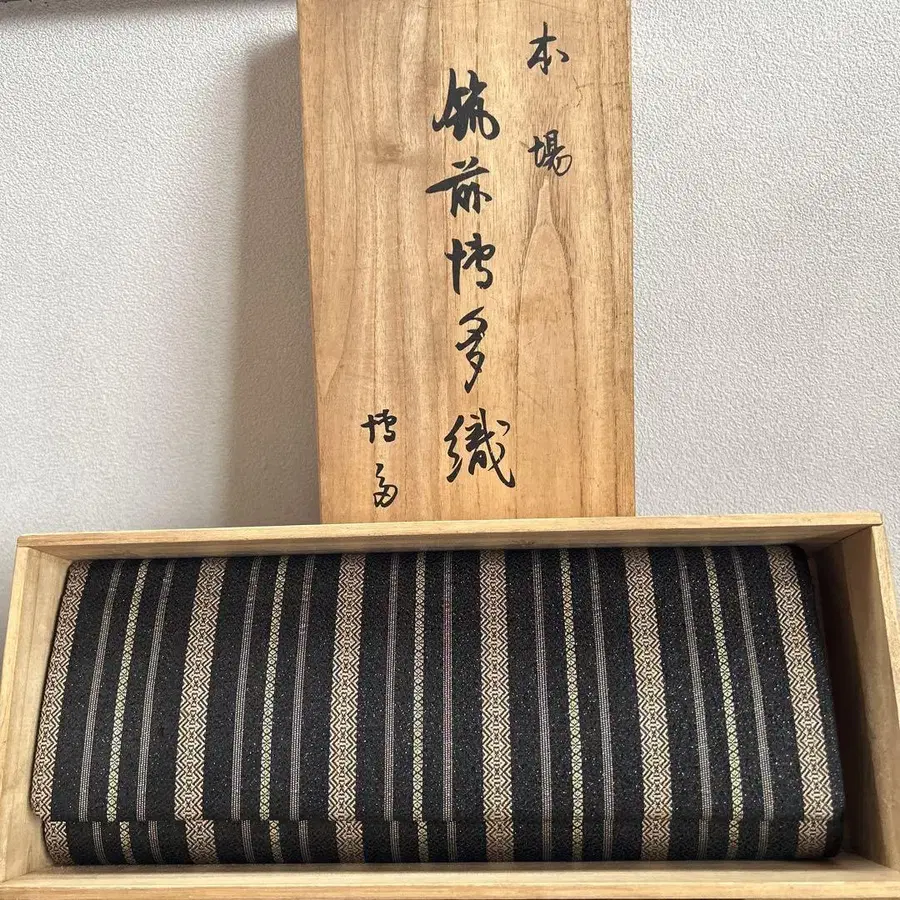 本場
筑前博多織
博多